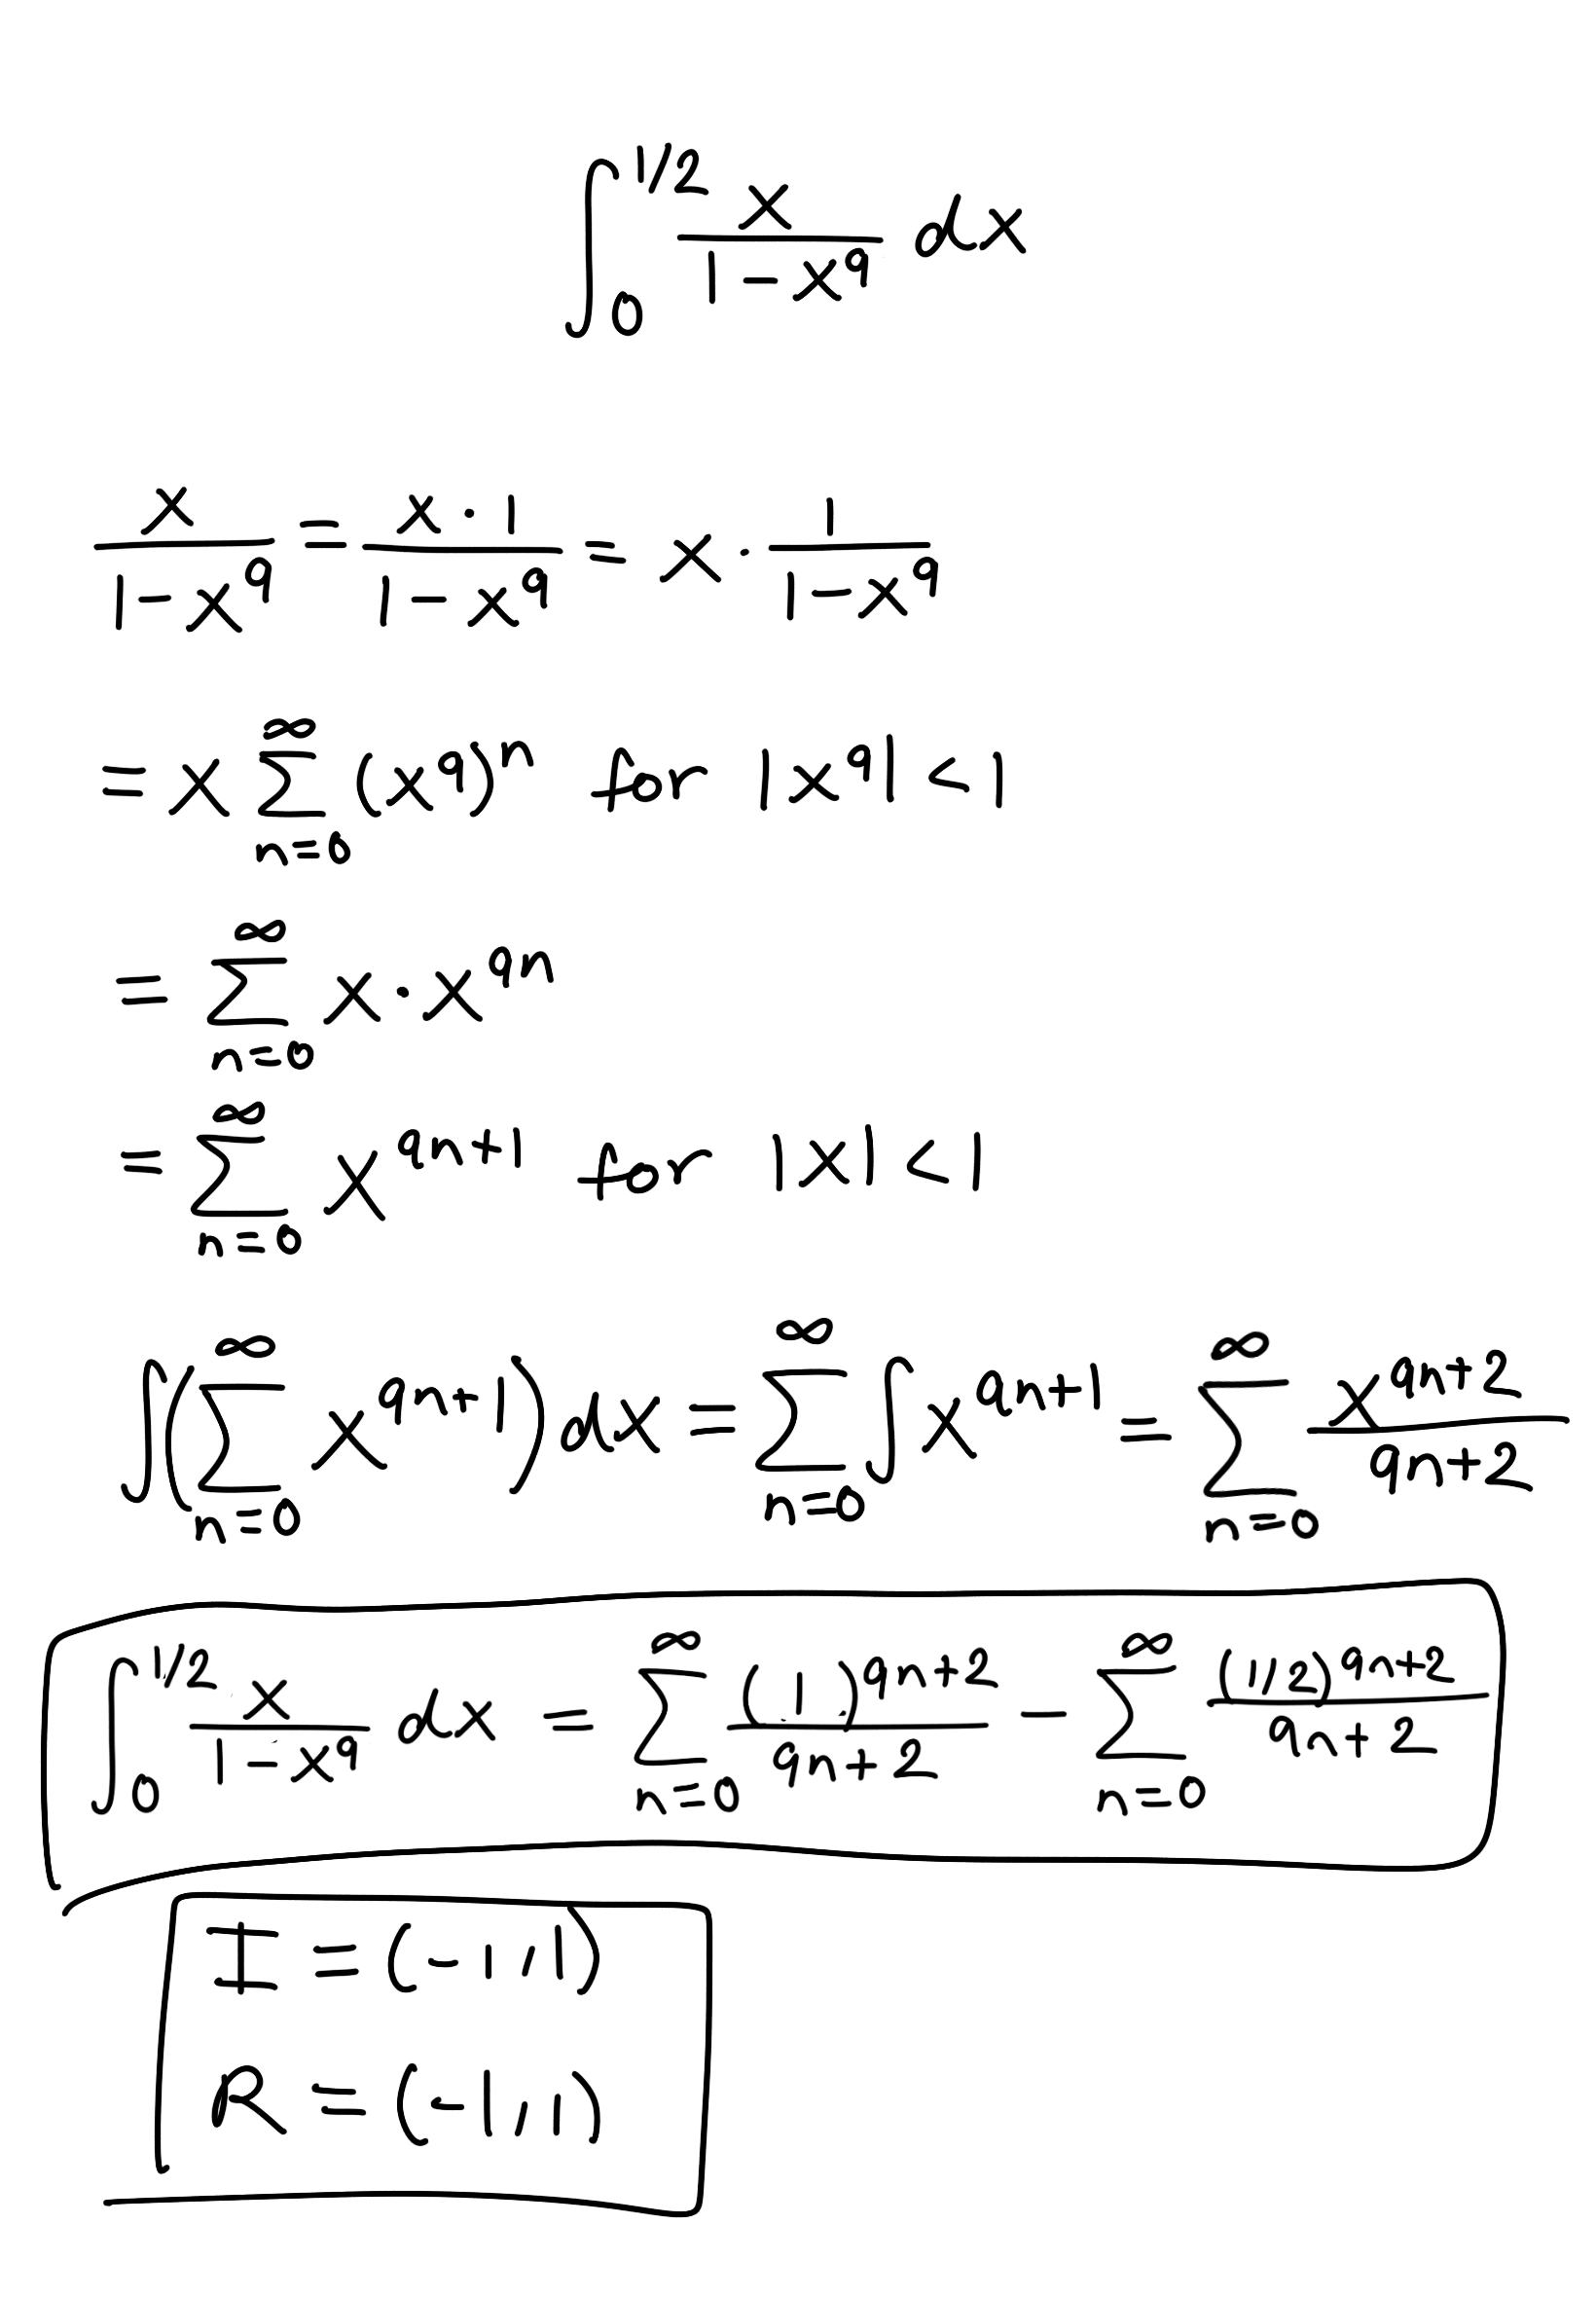 ∫₀^{1/2} x/(1-x^9) dx
x/(1-x^9) = (x·1)/(1-x^9) = x · 1/(1-x^9)
= x ∑_{n=0}^{∞} (x^9)^n for |x^9| < 1
= ∑_{n=0}^{∞} x·x^{9n}
= ∑_{n=0}^{∞} x^{9n+1} for |x| < 1
∫(∑_{n=0}^{∞} x^{9n+1})dx = ∑_{n=0}^{∞} ∫x^{9n+1} = ∑_{n=0}^{∞} x^{9n+2}/(9n+2)
∫₀^{1/2} x/(1-x^9) dx = ∑_{n=0}^{∞} (1)^{9n+2}/(9n+2) - ∑_{n=0}^{∞} (1/2)^{9n+2}/(9n+2)
I = (-1,1)
R = (-1,1)